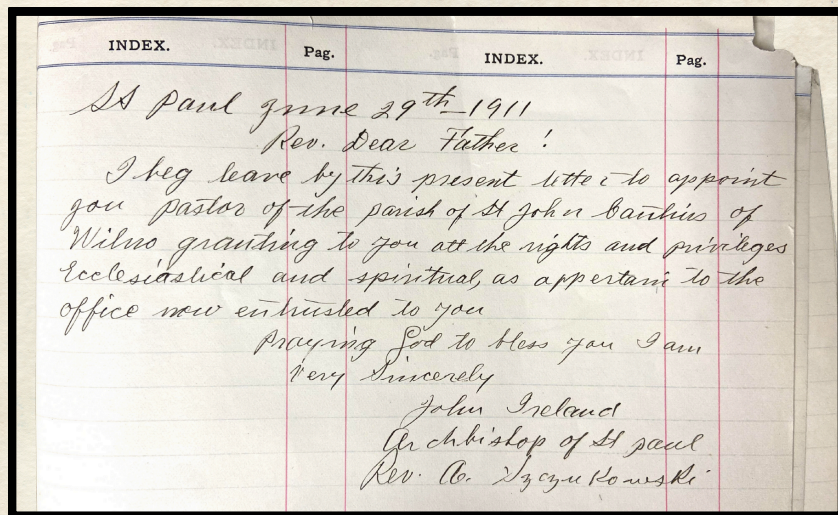 INDEX. Pag. INDEX. Pag.
St Paul June 29th - 1911
Rev. Dear Father!
I beg leave by this present letter to appoint
you pastor of the parish of St John Cantius of
Wilno granting to you all the rights and privileges
Ecclesiastical and spiritual, as appertain to the
office now entrusted to you
Praying God to bless you I am
Very Sincerely
John Ireland
Archbishop of St paul
Rev. A. Szczukowski